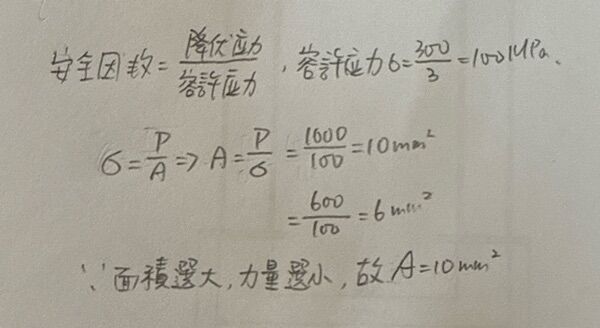 安全因數=降伏应力/容許应力, 容許应力σ=300/3=100MPa.
σ=P/A⇒A=P/σ=1000/100=10mm²
=600/100=6mm²
∵面積選大,力量選小,故A=10mm²